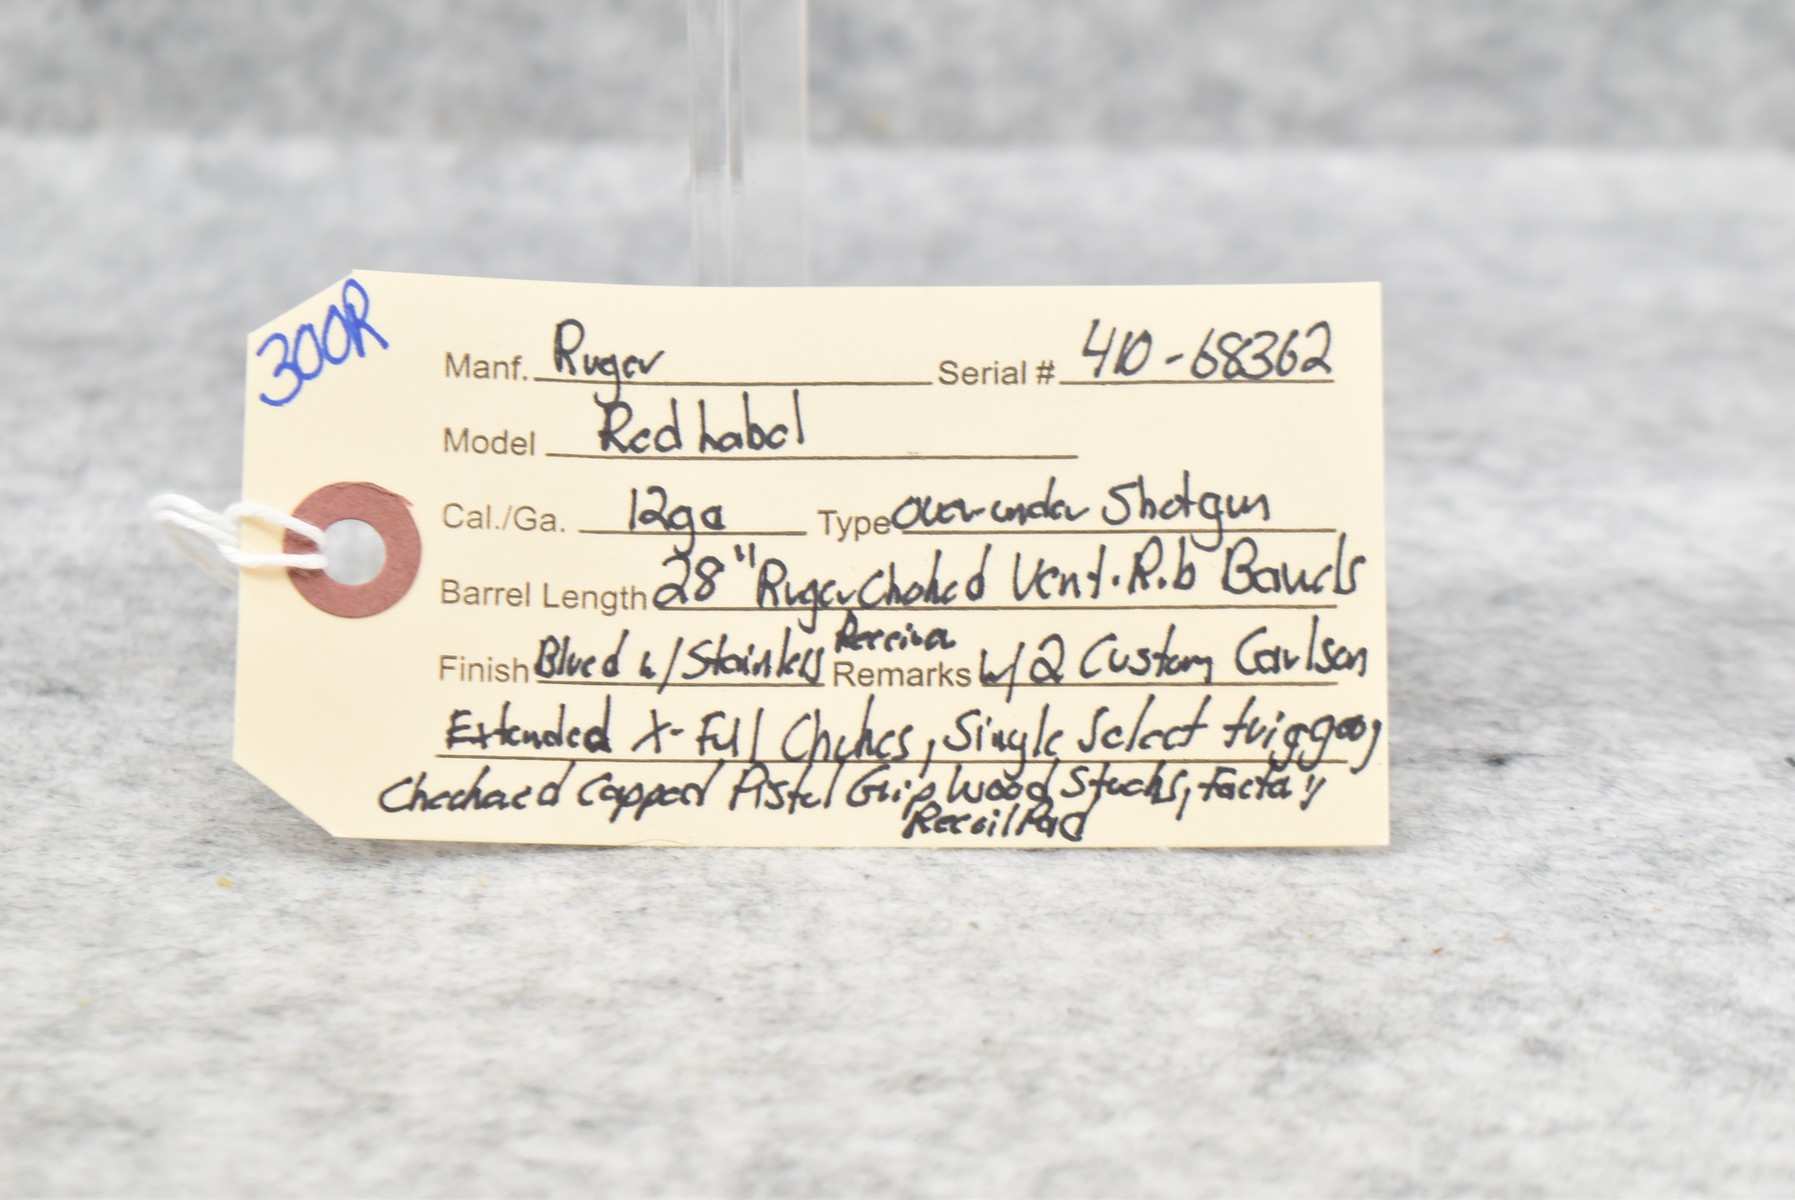 300R
Manf. Ruger Serial # 410-68362
Model Red Label
Cal./Ga. 12ga Type Over-under Shotgun
Barrel Length 28" Ruger Choked Vent. Rib Barrels
Finish Blued w/ Stainless Receiver Remarks w/ 2 Custom Carlson
Extended X-Full Chokes, Single Select trigger,
Checkered Capped Pistol Grip Wood Stocks, Factory
Recoil Pad